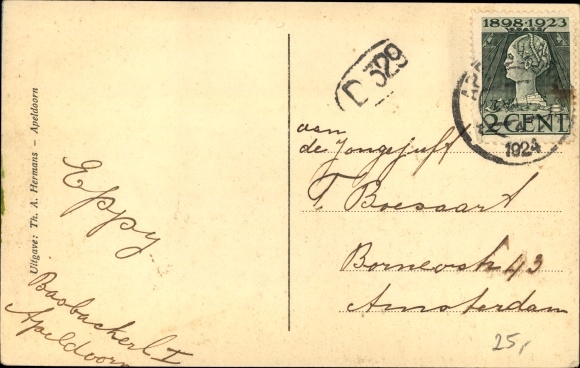 1898-1923
2 CENT
1924
D 329
Uitgave: Th. A. Hermans – Apeldoorn
Eppy
I
Apeldoorn
aan
de Jongejuff
T Boessaart
Borneostr 43
Amsterdam
25,